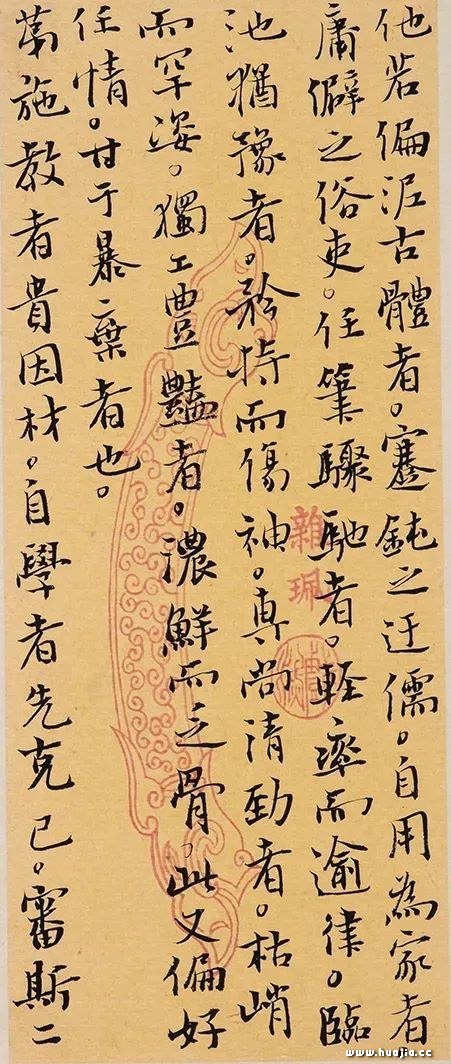 他若偏泥古體者。蹇鈍之迂儒。自用為家者
庸僻之俗吏。任筆驟馳者。輕率而逾律。臨
池猶豫者。矜持而傷神。專尚清勁者。枯峭
而罕姿。獨工豊豔者。濃鮮而乏骨。此又偏好
任情。甘于暴棄者也。
第施教者貴因材。自學者先克己。審斯二
雜珮
www.huajia.cc